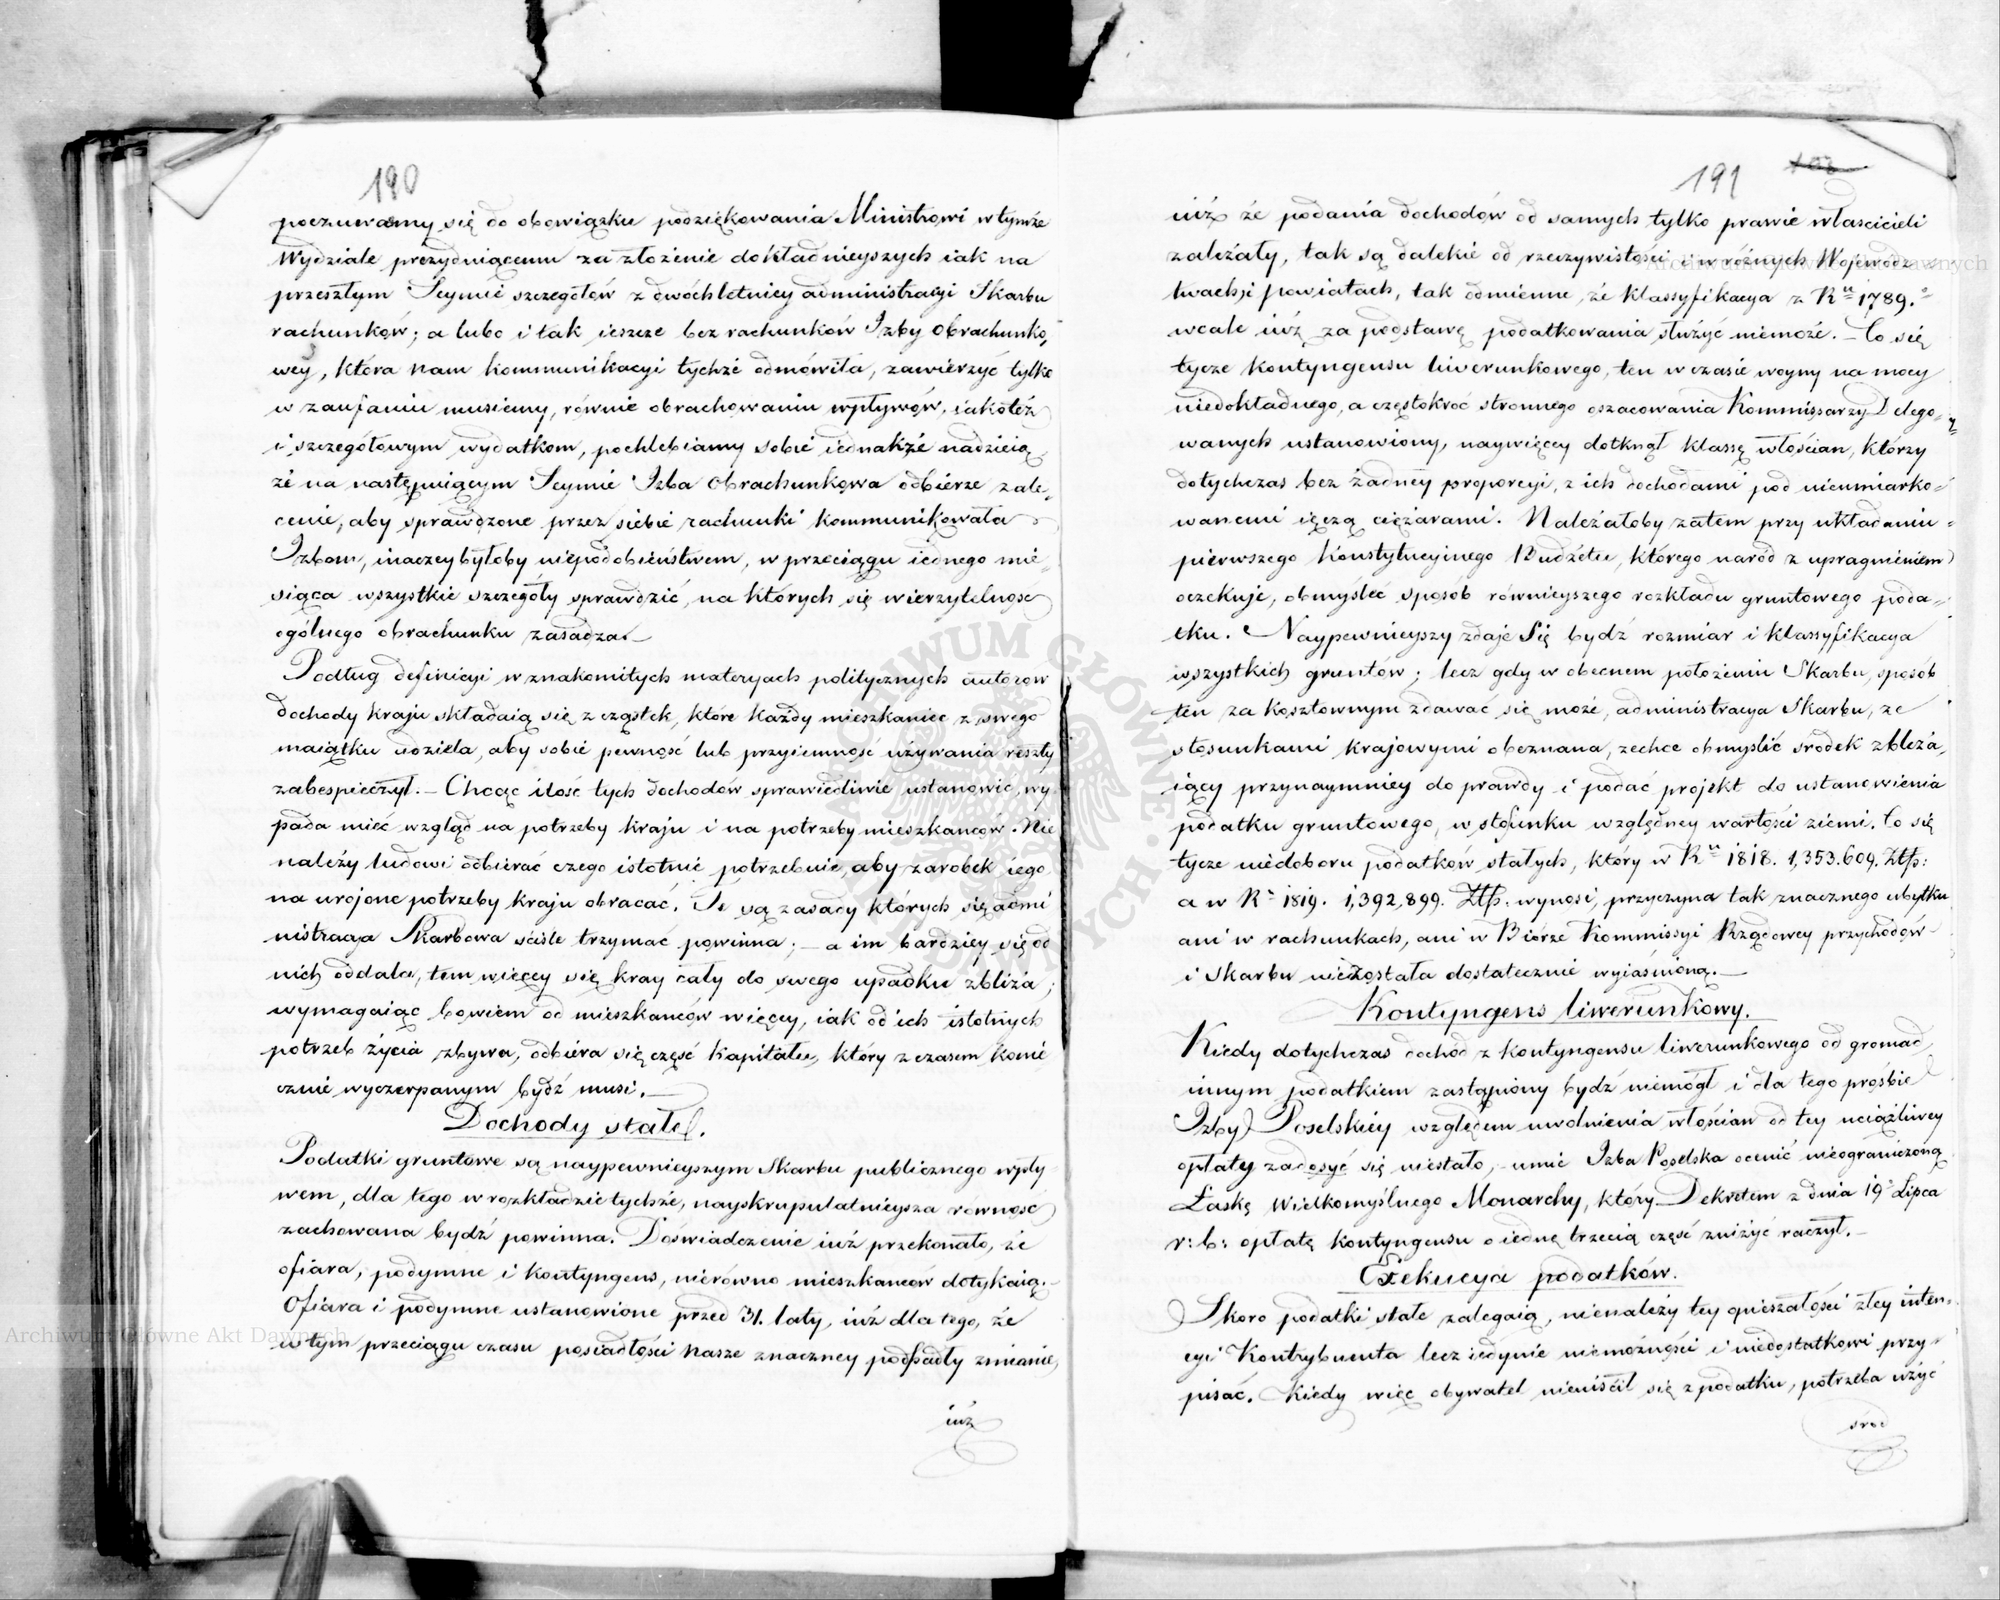 190
poczuwamy się do obowiązku podziękowania Ministrowi w tymże
Wydziale prezyduiącemu za złożenie dokładnieyszych iak na
przeszłym Seymie szczegółów z dwóchletniey administracyi Skarbu
rachunków; a lubo i tak ieszcze bez rachunków Izby Obrachunko„
wey, która nam kommunikacyi tychże odmówiła, zawierzyć tylko
w zaufaniu musiemy, równie obrachowaniu wpływów, iakoteż
i szczegółowym wydatkom, pochlebiamy sobie iednakże nadzieią
że na następuiącym Seymie Izba Obrachunkowa odbierze zale„
cenie, aby sprawdzone przez siebie rachunki kommunikowała
Izbom, inaczey byłoby niepodobieństwem, w przeciągu iednego mie„
siąca wszystkie szczegóły sprawdzić, na których się wierzytelność
ogólnego obrachunku zasadza.—
Podług definicyi w znakomitych materyach politycznych autorów
dochody kraju składaią się z cząstek, które każdy mieszkaniec z swego
maiątku udziela, aby sobie pewność lub przyiemność używania reszty
zabespieczył.— Chcąc ilość tych dochodów sprawiedliwie ustanowić, wy
pada mieć wzgląd na potrzeby kraju i na potrzeby mieszkanców. Nie
należy ludowi odbierać czego istotnie potrzebuie, aby zarobek iego
na urojone potrzeby kraju obracać. Te są zasady których się admi
nistracya Skarbowa ściśle trzymać powinna; — a im bardziey się od
nich oddala, tem więcey się kray cały do swego upadku zbliża;
wymagaiąc bowiem od mieszkanców więcey, iak od ich istotnych
potrzeb życia zbywa, odbiera się część kapitału, który z czasem konie
cznie wyczerpanym bydź musi.—
Dochody stałe.
Podatki gruntowe są naypewnieyszym Skarbu publicznego wpły
wem, dla tego w rozkładzie tychże, nayskrupulatnieysza równość
zachowana bydź powinna. Doświadczenie iuż przekonało, że
ofiara, podymne i kontyngens, nierówno mieszkanców dotykaią.—
Ofiara i podymne ustanowione przed 31. laty, iuż dla tego, że
w tym przeciągu czasu posiadłości nasze znaczney podpadły zmianie,
iuż
191
iuż że podania dochodów od samych tylko prawie właścicieli
zależały, tak są dalekie od rzeczywistości i w różnych Wojewódz
twach i powiatach, tak odmienne, że klassyfikacya z Ru 1789.
wcale iuż za podstawę podatkowania służyć niemoże.— Co się
tycze kontyngensu liwerunkowego, ten w czasie woyny na mocy
niedokładnego, a częstokroć stronnego oszacowania Kommissarzy Delego„
wanych ustanowiony, naywięcey dotknął klassę włościan, którzy
dotychczas bez żadney proporcyi, z ich dochodami pod nieumiarko„
wanemi ięczą ciężarami. Należałoby zatem przy układaniu
pierwszego Konstytucyinego Budżetu, którego naród z upragnieniem
oczekuje, obmyśleć sposób równieyszego rozkładu gruntowego poda„
tku. Naypewnieyszy zdaje się bydź rozmiar i klassyfikacya
wszystkich gruntów; lecz gdy w obecnem położeniu Skarbu, sposób
ten za kosztownym zdawać się może, administracya Skarbu, ze
stosunkami krajowymi obeznana, zechce obmyślić srodek zbliża„
iący przynaymniey do prawdy i podać projekt do ustanowienia
podatku gruntowego, w stosunku względney wartości ziemi. Co się
tycze niedoboru podatków stałych, który w Ru 1818. 1,353.609. Złp:
a w R. 1819. 1,392,899. Złp: wynosi, przyczyna tak znacznego ubytku
ani w rachunkach, ani w Biórze Kommissyi Rządowey przychodów
i Skarbu niezostała dostatecznie wyiaśnioną.—
Kontyngens liwerunkowy.
Kiedy dotychczas dochód z kontyngensu liwerunkowego od gromad
innym podatkiem zastąpiony bydź niemógł i dla tego prośbie
Izby Poselskiey względem uwolnienia włościan od tey uciążliwey
opłaty zadosyć się niestało,— umie Izba Poselska ocenić nieograniczoną
Łaskę Wielkomyślnego Monarchy, który Dekretem z dnia 19 Lipca
r: b: opłatę kontyngensu o iednę trzecią część zniżyć raczył.—
Exekucya podatków.
Skoro podatki stałe zalegaią, nienależy tey opieszałości złey inten„
cyi Kontrybuenta lecz iedynie niemożności i niedostatkowi przy„
pisać. Kiedy więc obywatel nieniścił się z podatku, potrzeba użyć
środ
Archiwum Główne Akt Dawnych
Archiwum Główne Akt Dawnych
ARCHIWUM GŁÓWNE AKT DAWNYCH